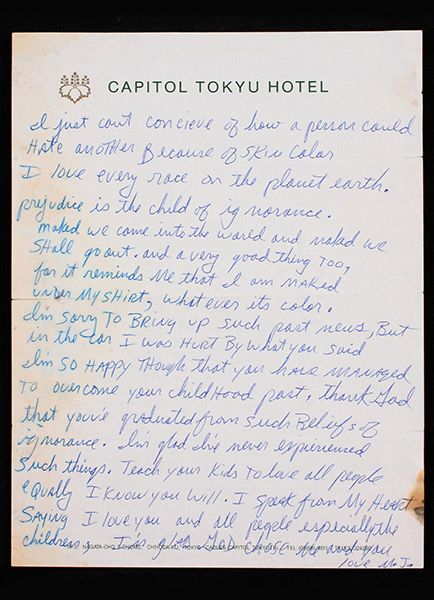 CAPITOL TOKYU HOTEL
I just cant concieve of how a person could
Hate another Because of Skin Color
I love every race on the planet earth.
prejudice is the child of ignorance.
naked we come into the world and naked we
shall go out. and a very good thing too,
for it reminds me that I am naked
under my shirt, whatever its color.
I'm sorry to Bring up such past news, But
in the car I was Hurt By what you said
I'm so Happy though that you have managed
To overcome your childhood past. Thank God
that you've graduated from such Beliefs of
ignorance. I'm glad I've never experienced
such things. Teach your kids to love all people
equally I know you will. I speak from My Heart
Saying I love you and all people especially the
children, I'm glad God chose me and you
love M.J.
NAGATA-CHO CHIYODA-KU, TOKYO